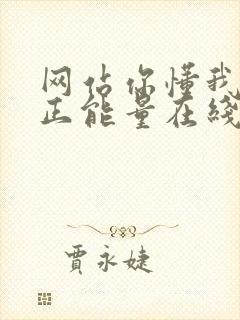 网站你懂我
正能量在线
贾永婕